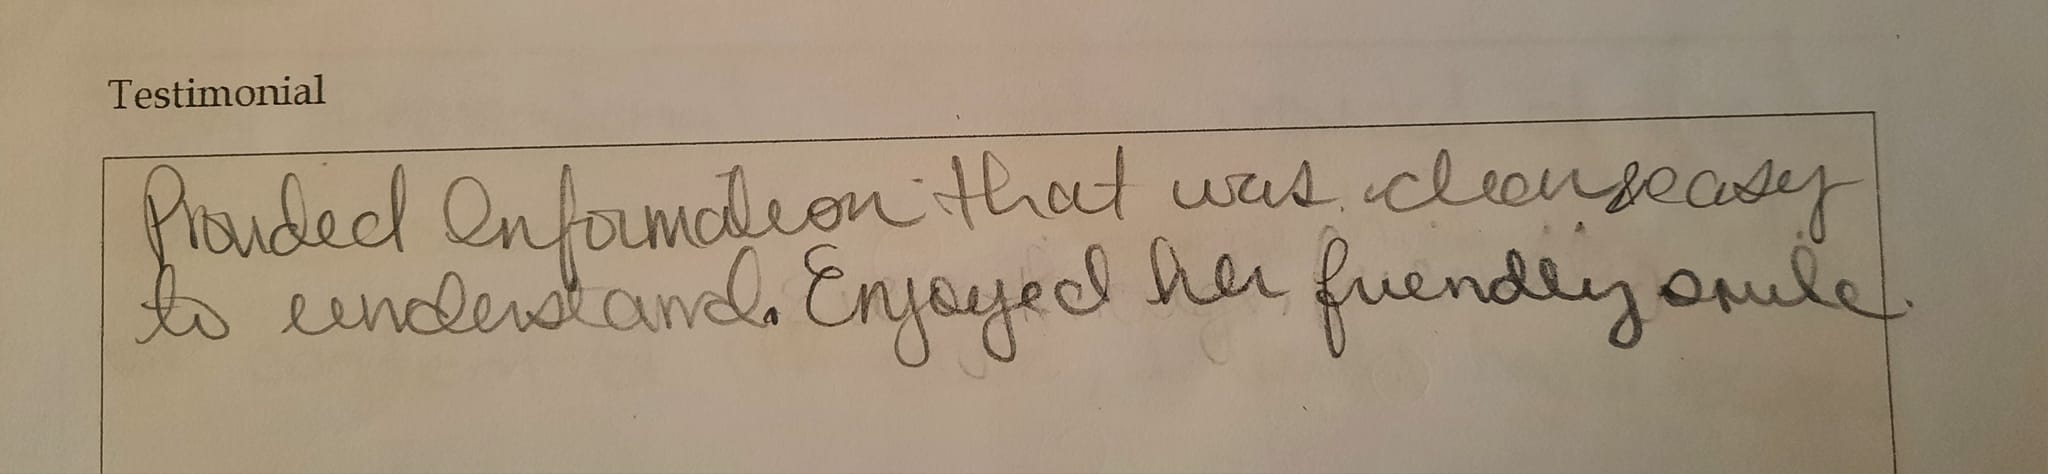 Testimonial
Provided information that was clear & easy
to understand. Enjoyed her friendly smile.